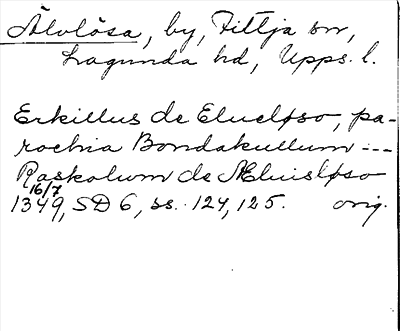 Älvlösa, by, Fittja sn,
Lagunda hd, Upps. l.
Erkillus de Elueløso, pa-
rochia Bondakullum ---
Raskolum de Æluisløso
16/7
1349, SD 6, ss. 124, 125. orig.